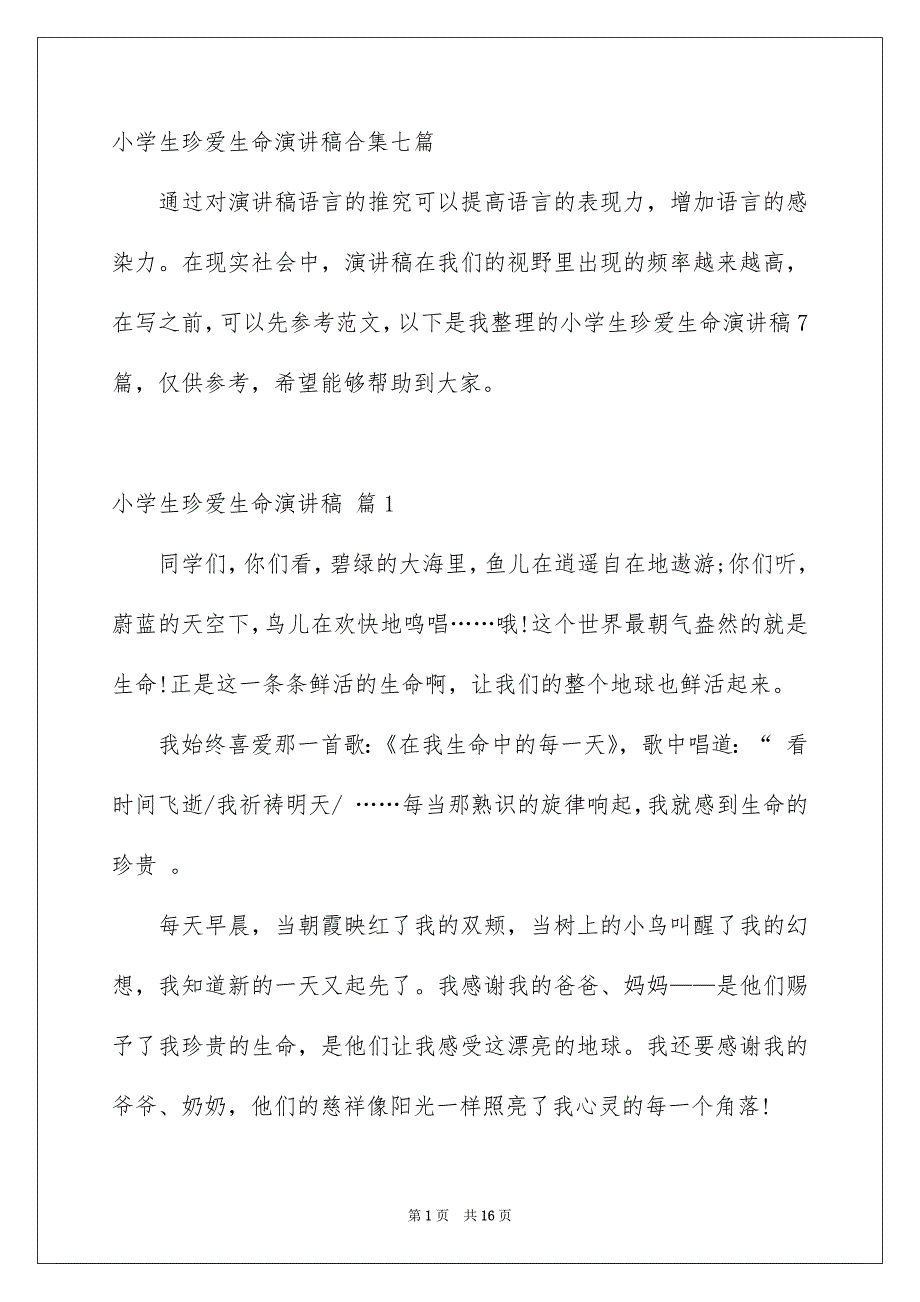 小学生珍爱生命演讲稿合集七篇
通过对演讲稿语言的推究可以提高语言的表现力，增加语言的感
染力。在现实社会中，演讲稿在我们的视野里出现的频率越来越高，
在写之前，可以先参考范文，以下是我整理的小学生珍爱生命演讲稿7
篇，仅供参考，希望能够帮助到大家。
小学生珍爱生命演讲稿 篇1
同学们，你们看，碧绿的大海里，鱼儿在逍遥自在地遨游;你们听，
蔚蓝的天空下，鸟儿在欢快地鸣唱……哦!这个世界最朝气盎然的就是
生命!正是这一条条鲜活的生命啊，让我们的整个地球也鲜活起来。
我始终喜爱那一首歌：《在我生命中的每一天》，歌中唱道：“ 看
时间飞逝/我祈祷明天/ ……每当那熟识的旋律响起，我就感到生命的
珍贵 。
每天早晨，当朝霞映红了我的双颊，当树上的小鸟叫醒了我的幻
想，我知道新的一天又起先了。我感谢我的爸爸、妈妈——是他们赐
予了我珍贵的生命，是他们让我感受这漂亮的地球。我还要感谢我的
爷爷、奶奶，他们的慈祥像阳光一样照亮了我心灵的每一个角落!
第 1 页 共 16 页